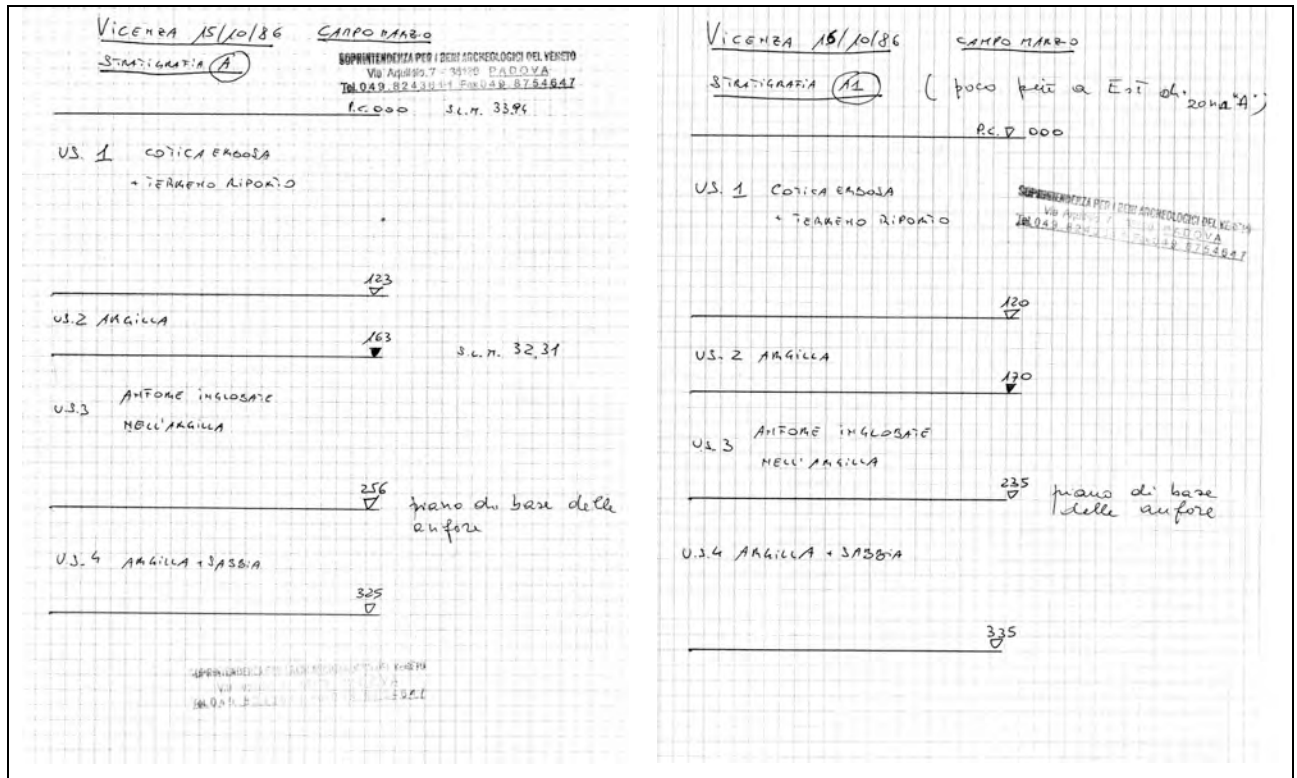 VICENZA 15/10/86 CAMPO MARZIO
STRATIGRAFIA A
SOPRINTENDENZA PER I BENI ARCHEOLOGICI DEL VENETO
Via Aquileia, 7 - 35120 PADOVA
Tel. 049 8243811 Fax 049 8754647
P.C. 000 S.L.M. 33,94
US. 1 COTICA ERBOSA
+ TERRENO RIPORTO
123
US.2 ARGILLA
163
S.L.M. 32,31
U.S.3 ANFORE INGLOBATE
NELL'ARGILLA
256
piano di base delle
anfore
U.S.4 ARGILLA + SABBIA
325
VICENZA 16/10/86 CAMPO MARZIO
STRATIGRAFIA A1 (poco più a Est di zona "A")
P.C. 000
US. 1 COTICA ERBOSA
+ TERRENO RIPORTO
SOPRINTENDENZA PER I BENI ARCHEOLOGICI DEL VENETO
PADOVA
Tel. 049 8754647
120
US. 2 ARGILLA
170
U.S. 3 ANFORE INGLOBATE
NELL'ARGILLA
235
piano di base
delle anfore
U.S.4 ARGILLA + SABBIA
335